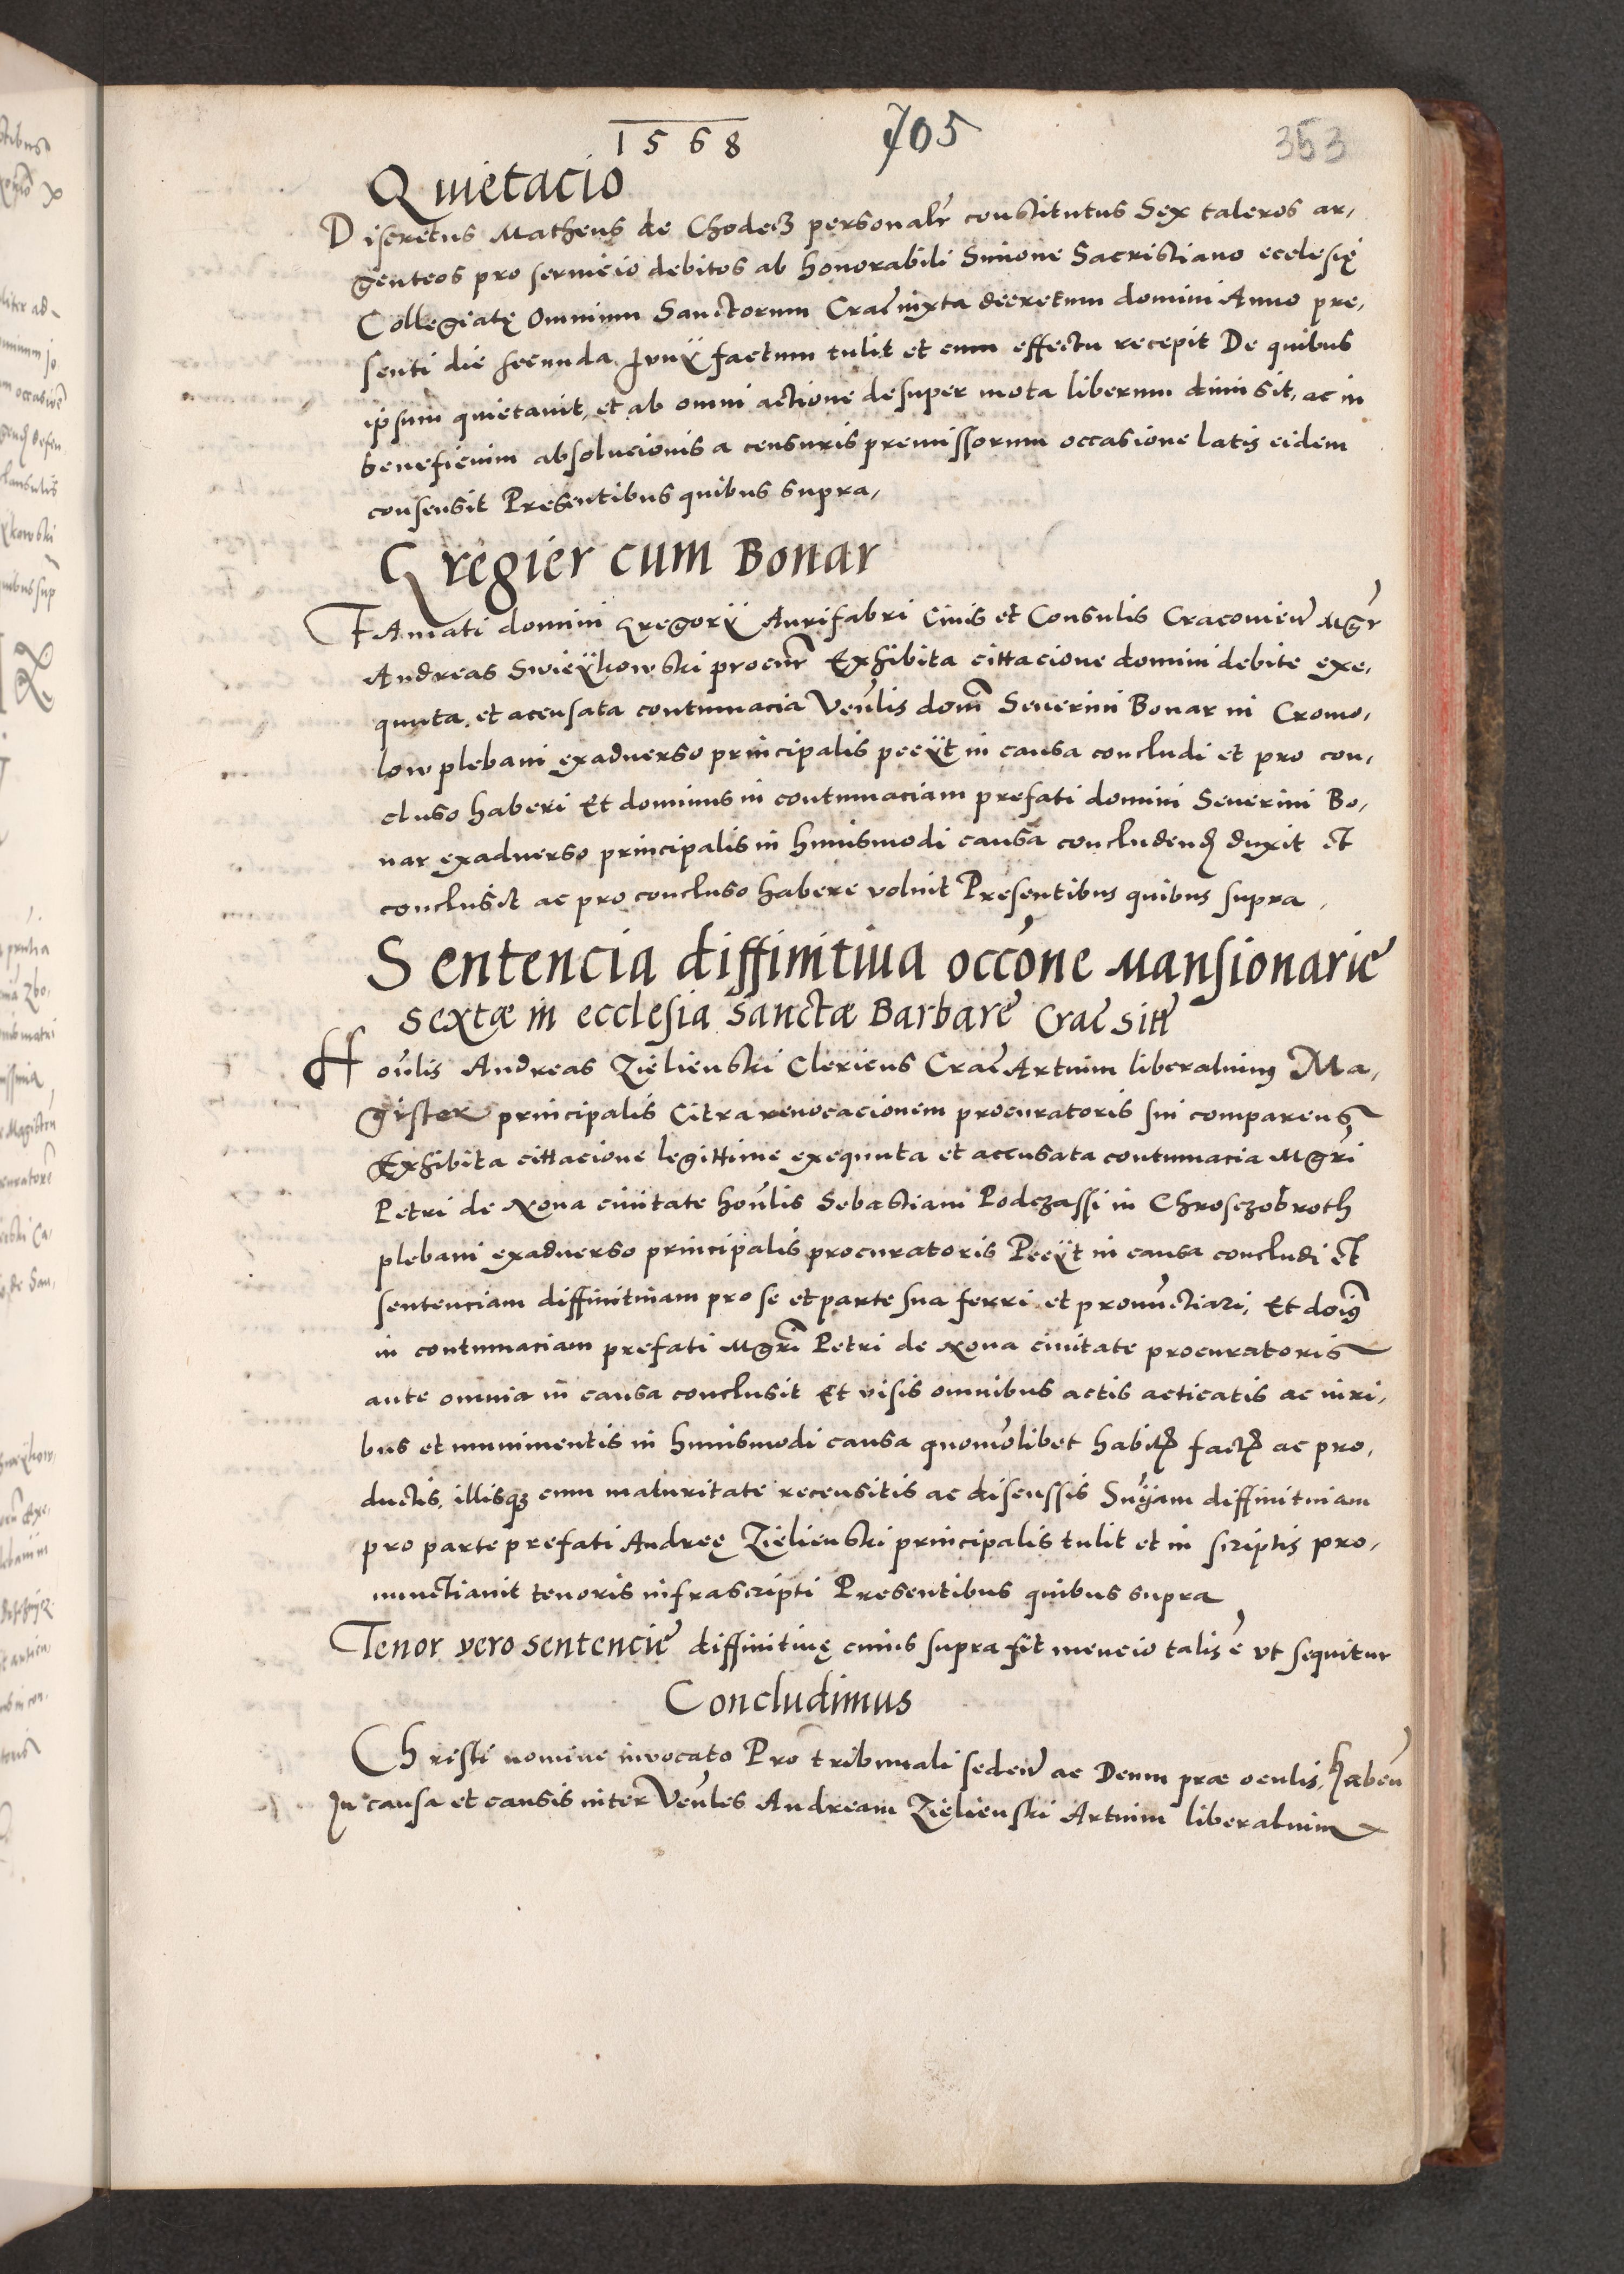 1568 705 353
Quietacio
Discretus Matheus de Chodecz personalr constitutus Sex taleros ar,
genteos pro seruicio debitos ab honorabili Simone Sacristiano ecclesię
Collegiatę Omnium Sanctorum Crac iuxta decretum domini Anno pre,
senti die secunda Junÿ factum tulit et cum effectu recepit De quibus
ipsum quietauit, et ab omni actione desuper mota liberum dimisit, ac in
beneficium absolucionis a censuris premissorum occasione latis eidem
consensit Presentibus quibus supra,
Gregier cum Bonar
FAmati domini Gregorÿ Aurifabri Ciuis et Consulis Cracouien Mgr
Andreas Swieÿkowski procur Exhibita cittacione domini debite exe,
quuta, et accusata contumacia Venlis dom Seuerini Bonar in Cromo,
low plebani exaduerso principalis peeÿt in causa concludi et pro con,
cluso haberi Et dominus in contumaciam prefati domini Seuerini Bo,
nar exaduerso principalis in huiusmodi causa concludend duxit et
conclusit ac pro concluso habere voluit Presentibus quibus supra,
Sentencia diffinitiua occone Mansionarie
sextæ in ecclesia Sanctæ Barbare Crac sitte
Honlis Andreas Zielienski Clericus Crac Artium liberalium Ma,
gister principalis Citra reuocacionem procuratoris sui comparens
Exhibita cittacione legittime exequuta et accusata contumacia Mgri
Petri de Noua ciuitate honlis Sebastiani Podczassi in Chrosczobroth
plebani exaduerso principalis procuratoris Peeÿt in causa concludi et
sentenciam diffinitiuam pro se et parte sua ferri et pronunctiari, Et doius
in contumaciam prefati Mgri Petri de Noua ciuitate procuratoris
ante omnia in causa conclusit Et visis omnibus actis acticatis ac iuri,
bus et munimentis in huiusmodi causa quomolibet habitis factis ac pro,
ductis, illisq cum maturitate recensitis ac discussis Snÿam diffinitiuam
pro parte prefati Andreę Zielienski principalis tulit et in scriptis pro,
nunctiauit tenoris infrascripti Presentibus quibus supra
Tenor vero sentencie diffinitiuę cuius supra fit mencio talis e vt sequitur
Concludimus
Christi nomine inuocato Pro tribunali seden ac Deum præ oculis haben
In causa et causis inter Venles Andream Zielienski Artium liberalium